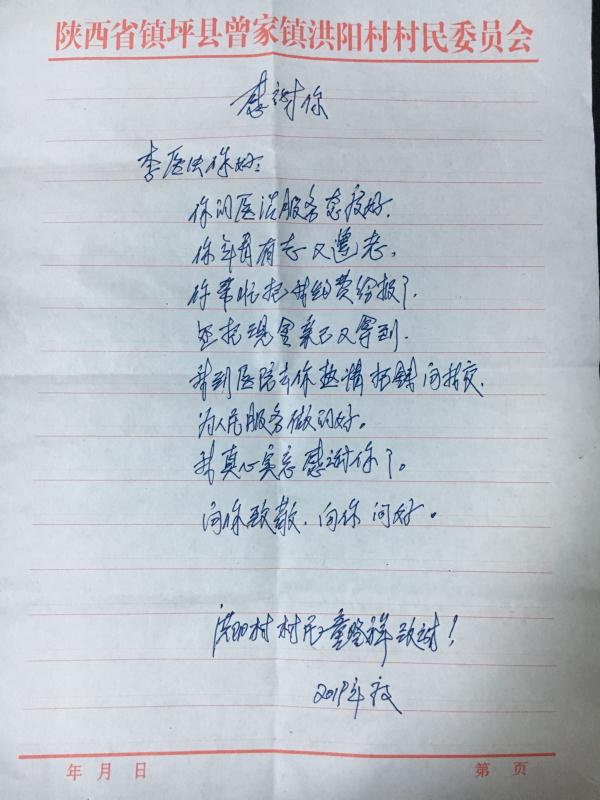 陕西省镇坪县曾家镇洪阳村村民委员会
感谢你
李医生你好:
你的医治服务态度好.
你年青有志又
你帮忙把我的费给报了.
还把现金亲己又拿到.
我到医院去你热情把我
为人民服务做的好。
我真心实意感谢你了。
向你致敬.向你问好。
洪阳村村民童 祥致谢!
2019年度
年 月 日
第 页